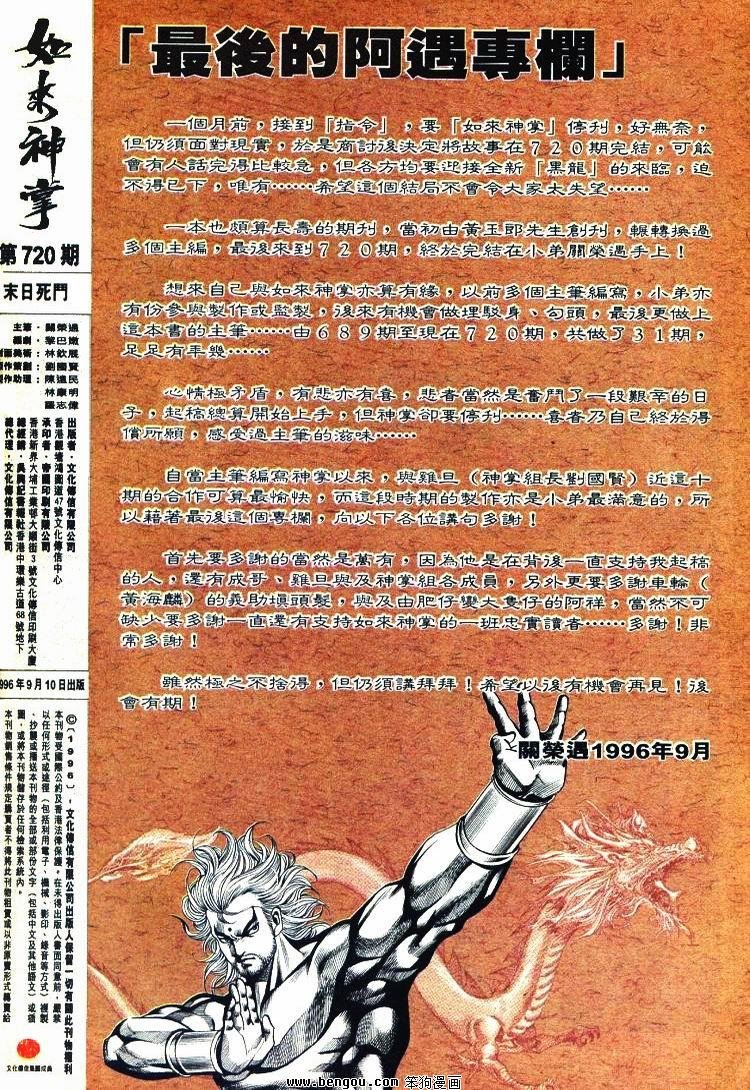 如來神掌
第720期
末日死鬥
主筆：關榮遇
編劇：黎巴嫩
封面美術：林欽展
製作策劃：劉國賢
製作助理：陳遠民
林康明
羅志偉
出版者：文化傳信有限公司
香港觀塘鴻圖道47號文化傳信中心
承印者：帝國印刷有限公司
香港新界大埔工業邨大順街3號文化傳信印刷大廈
總經銷：吳興記書報社香港中環樂古道68號地下
總代理：文化傳信有限公司
996年9月10日出版
©(1996)，文化傳信有限公司出版人保留一切有關此刊物權利
本刊物受國際公約及香港法律保護。在未得出版人書面同意前，嚴禁
以任何形式或途徑（包括利用電子、機械、影印、錄音等方式）複製
、抄襲或播送本刊物的全部或部份文字（包括中文及其他語文）或插
圖，或將本刊物儲存於任何檢索系統內。
本刊物銷售條件規定購買者不得將此刊物租賃或以非原賣形式轉賣給
文化傳信集團成員
「最後的阿遇專欄」
一個月前，接到「指令」，要「如來神掌」停刊，好無奈，
但仍須面對現實，於是商討後決定將故事在720期完結，可能
會有人話完得比較急，但各方均要迎接全新「黑龍」的來臨，迫
不得已下，唯有……希望這個結局不會令大家太失望……
一本也頗算長壽的期刊，當初由黃玉郎先生創刊，輾轉換過
多個主編，最後來到720期，終於完結在小弟關榮遇手上！
想來自己與如來神掌亦算有緣，以前多個主筆編寫，小弟亦
有份參與製作或監製，後來有機會做埋駁身、勾頭，最後更做上
這本書的主筆……由689期至現在720期，共做了31期，
足足有半幾……
心情極矛盾，有悲亦有喜，悲者當然是奮鬥了一段艱辛的日
子，起稿總算開始上手，但神掌卻要停刊……喜者乃自己終於得
償所願，感受過主筆的滋味……
自當主筆編寫神掌以來，與雞旦（神掌組長劉國賢）近這十
期的合作可算最愉快，而這段時期的製作亦是小弟最滿意的，所
以藉著最後這個專欄，向以下各位講句多謝！
首先要多謝的當然是萬有，因為他是在背後一直支持我起稿
的人，還有成哥、雞旦與及神掌組各成員，另外更要多謝車輪（
黃海麟）的義助塡頭髮，與及由肥仔變大隻仔的阿祥，當然不可
缺少要多謝一直還有支持如來神掌的一班忠實讀者……多謝！非
常多謝！
雖然極之不捨得，但仍須講拜拜！希望以後有機會再見！後
會有期！
關榮遇1996年9月
www.bengou.com 笨狗漫画